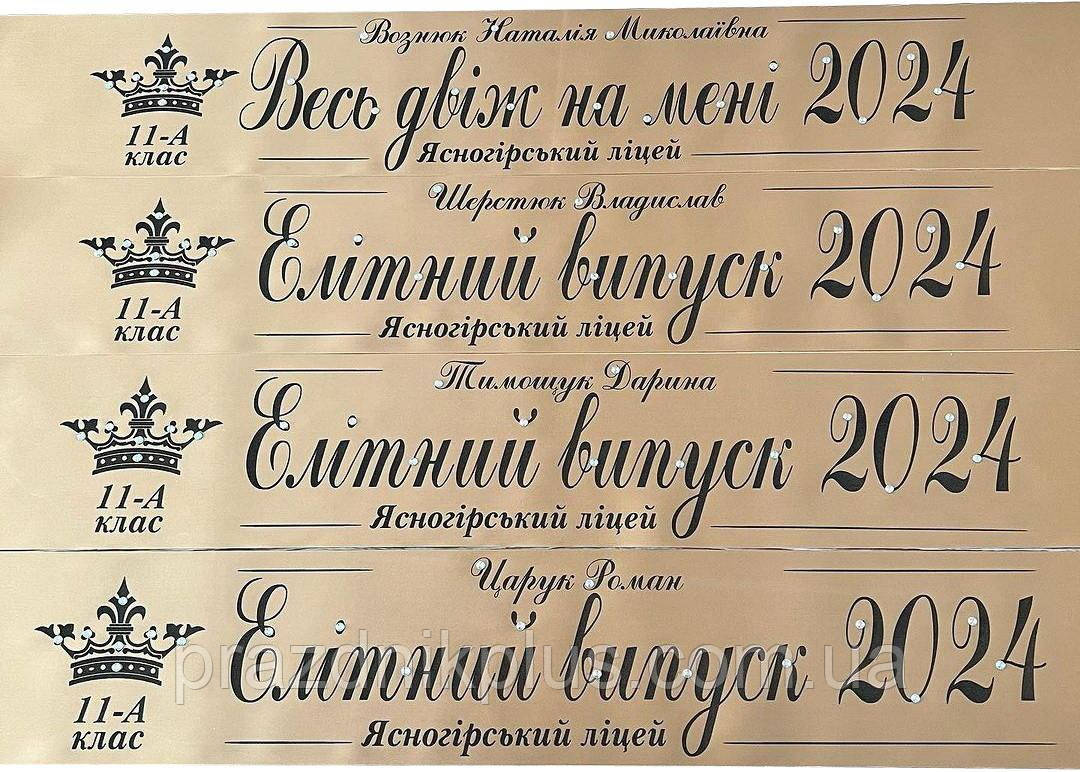 Вознюк Наталія Миколаївна
Весь двіж на мені 2024
11-А
клас
Ясногірський ліцей
Шерстюк Владислав
Елітний випуск 2024
11-А
клас
Ясногірський ліцей
Тимощук Дарина
Елітний випуск 2024
11-А
клас
Ясногірський ліцей
Царук Роман
Елітний випуск 2024
prazdnikplus.com.ua
11-А
клас
Ясногірський ліцей